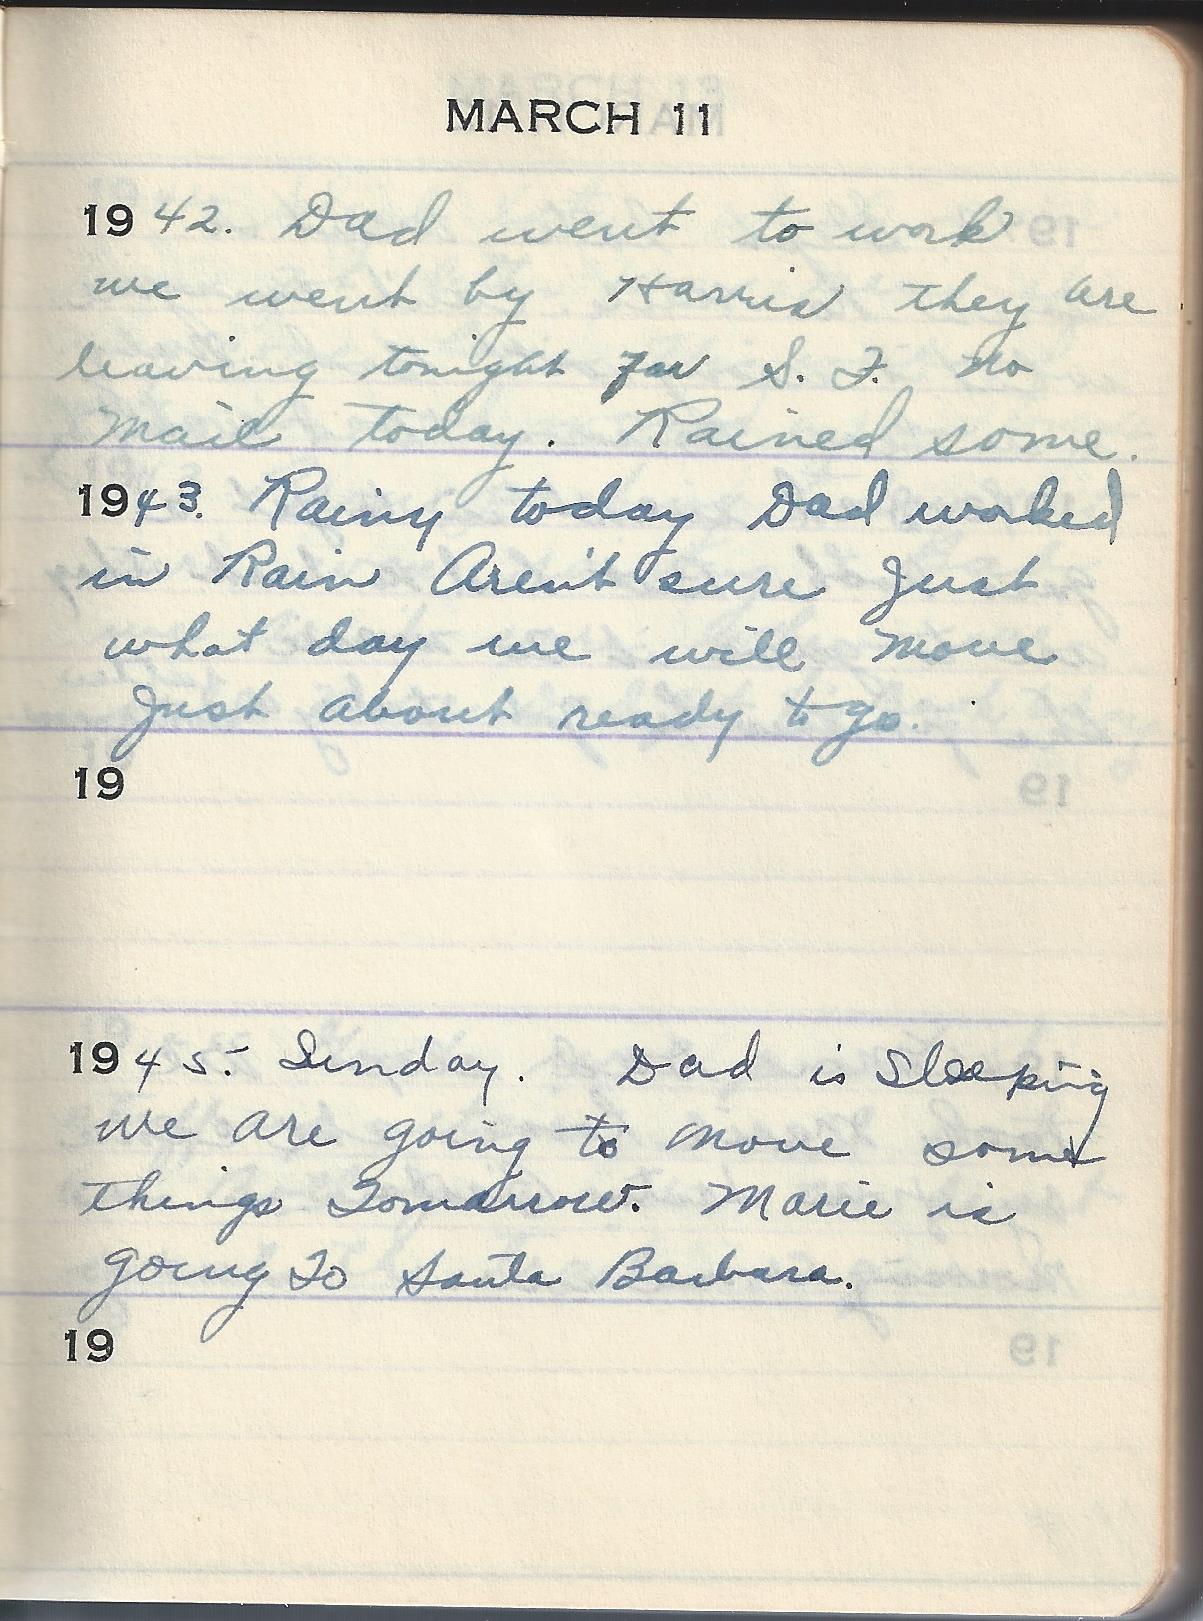 MARCH 11
1942. Dad went to work
we went by Harris they are
leaving tonight for S. F. no
mail today. Rained some.
1943. Rainy today Dad worked
in Rain Aren't sure Just
what day we will move
Just about ready to go.
19
1945. Sunday. Dad is Sleeping
we are going to move some
things Tomorrow. Marie is
going To Santa Barbara.
19